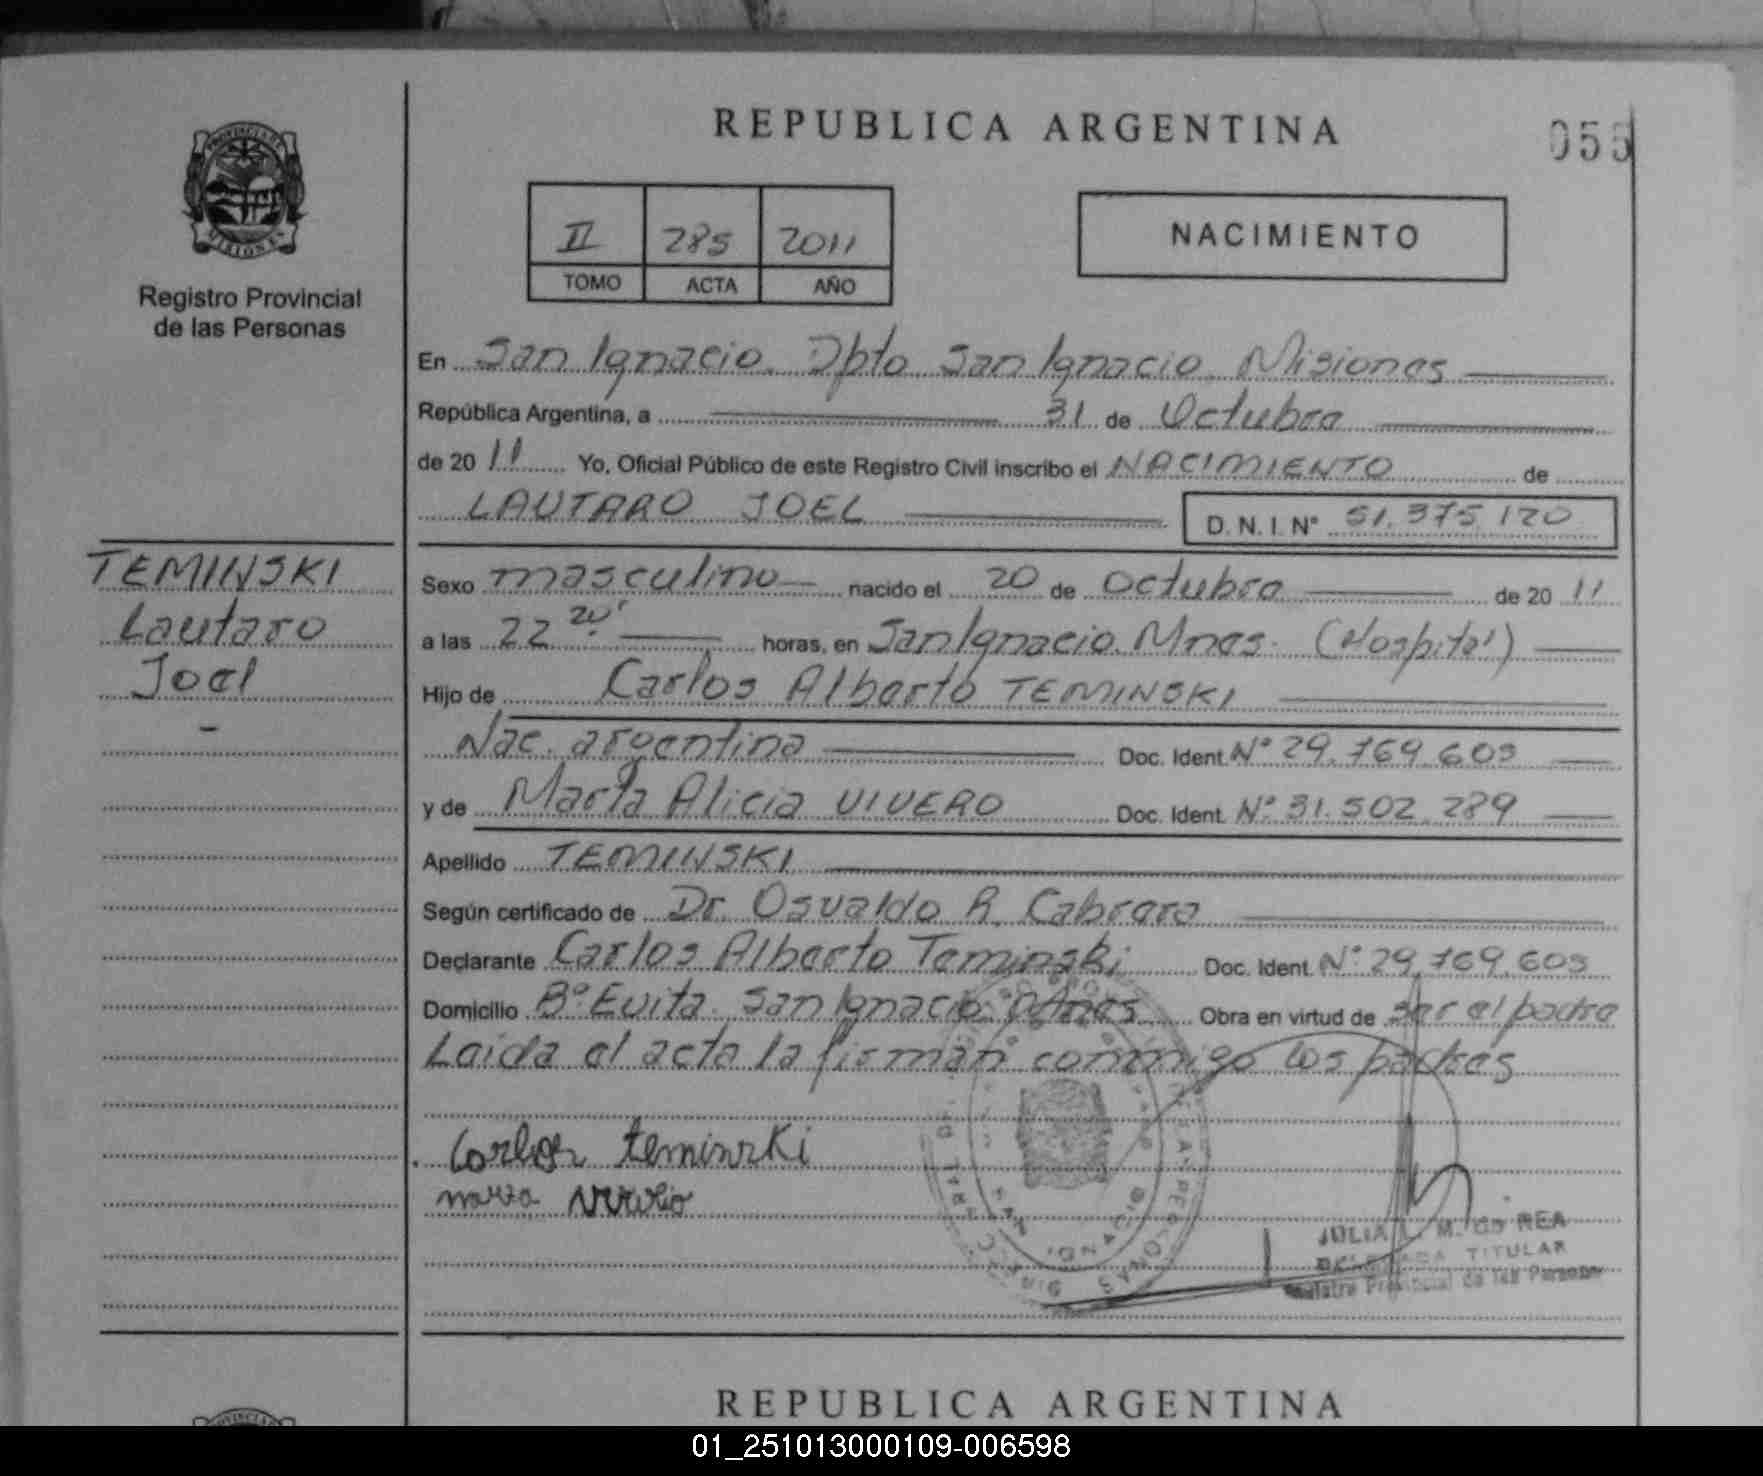 REPUBLICA ARGENTINA
055
PROVINCIA DE
MISIONES
Registro Provincial
de las Personas
II 285 2011
TOMO ACTA AÑO
NACIMIENTO
En San Ignacio. Dpto San Ignacio. Misiones
República Argentina, a 31 de Octubre
de 20 11 Yo, Oficial Público de este Registro Civil inscribo el NACIMIENTO de
LAUTARO JOEL D.N.I. N° 51.375.120
TEMINSKI
Lautaro
Joel
-
Sexo masculino nacido el 20 de Octubre de 20 11
a las 22 20' horas, en San Ignacio. Mnes. (Hospital)
Hijo de Carlos Alberto TEMINSKI
Nac. argentina Doc. Ident. N° 29.769.603
y de Marta Alicia VIVERO Doc. Ident. N° 31.502.289
Apellido TEMINSKI
Según certificado de Dr. Osvaldo R. Cabrera
Declarante Carlos Alberto Teminski Doc. Ident. N° 29.769.603
Domicilio B° Evita. San Ignacio Mnes Obra en virtud de ser el padre
Leida el acta la firman conmigo los padres
Carlos teminski
JULIA L. M. CORREA
DELEGADA TITULAR
Registro Provincial de las Personas
REPUBLICA ARGENTINA
PROVINCIA
01_251013000109-006598